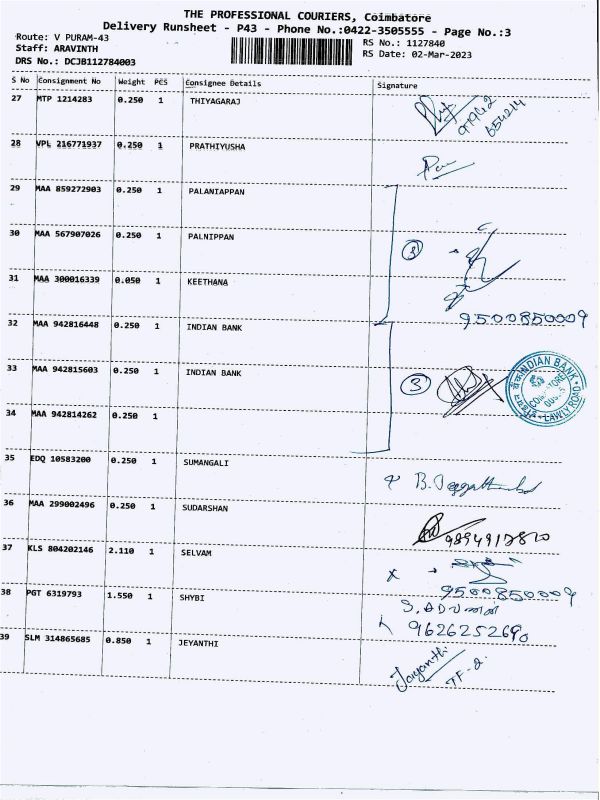 THE PROFESSIONAL COURIERS, Coimbatore
Delivery Runsheet - P43 - Phone No.:0422-3505555 - Page No.:3
Route: V PURAM-43
RS No.: 1127840
Staff: ARAVINTH
RS Date: 02-Mar-2023
DRS No.: DCJB112784003
S No Consignment No Weight PCS Consignee Details Signature
27 MTP 1214283 0.250 1 THIYAGARAJ
28 VPL 216771937 0.250 1 PRATHIYUSHA
29 MAA 859272903 0.250 1 PALANIAPPAN
30 MAA 567907026 0.250 1 PALNIPPAN
31 MAA 300016339 0.050 1 KEETHANA
9500850009
32 MAA 942816448 0.250 1 INDIAN BANK
33 MAA 942815603 0.250 1 INDIAN BANK
3
INDIAN BANK
LAWLY ROAD
34 MAA 942814262 0.250 1
35 EDQ 10583200 0.250 1 SUMANGALI
36 MAA 299002496 0.250 1 SUDARSHAN
37 KLS 804202146 2.110 1 SELVAM
9500850009
38 PGT 6319793 1.550 1 SHYBI
39 SLM 314865685 0.850 1 JEYANTHI
Jayanthi
TF-2